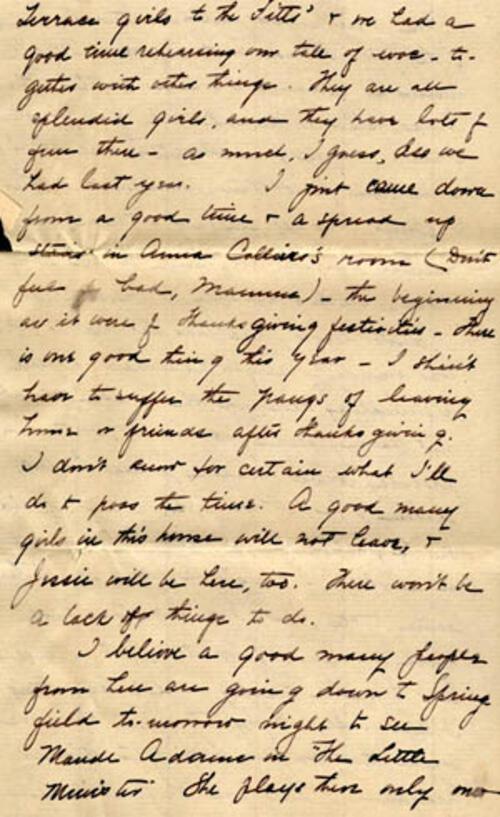 Terrace girls to the Fitts' & we had a
good time rehearsing our tale of woe - to-
gether with other things. They are all
splendid girls, and they have lots of
fun there - as much, I guess, as we
had last year. I just came down
from a good time & a spread up
stairs in Anna Collier's room (Don't
feel bad, Mamma) - the beginning
as it were of Thanksgiving festivities - there
is one good thing this year - I shan't
have to suffer the pangs of leaving
home or friends after Thanksgiving.
I don't know for certain what I'll
do to pass the time. A good many
girls in this house will not leave, &
Jessie will be here, too. There won't be
a lack of things to do.
I believe a good many people
from here are going down to Spring
field to-morrow night to see
Maude Adams in "The Little
Minister" She plays there only one